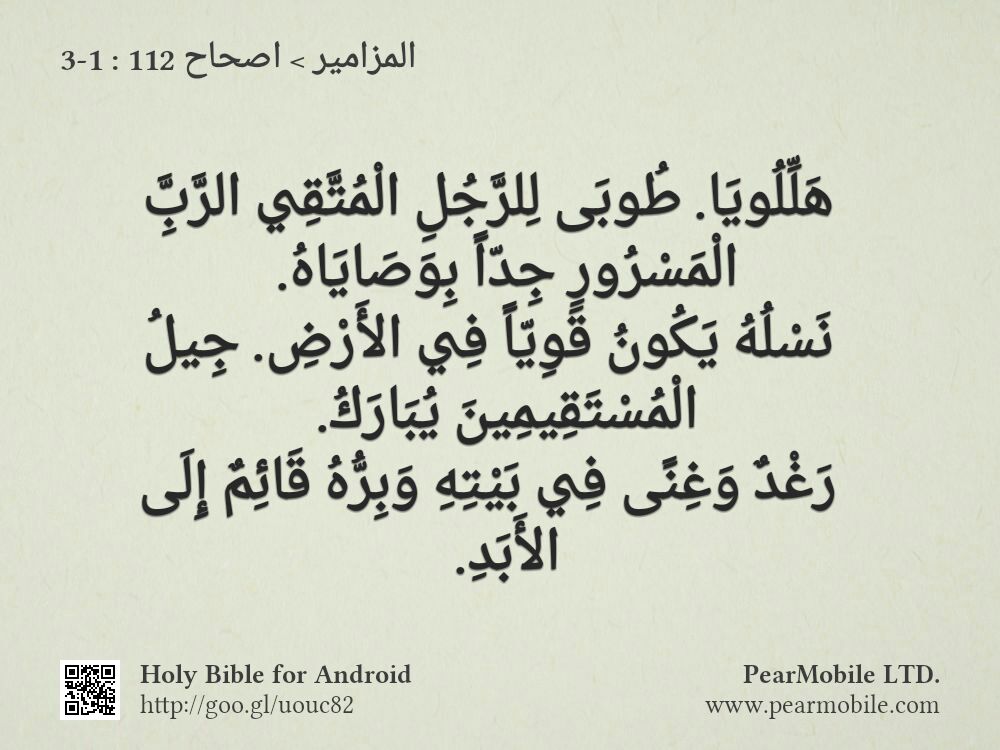 المزامير > اصحاح 112 : 1-3
هَلِّلُويَا. طُوبَى لِلرَّجُلِ الْمُتَّقِي الرَّبَِّ
الْمَسْرُورِ جِدّاً بِوَصَايَاهُ.
نَسْلُهُ يَكُونُ قَوِيّاً فِي الأَرْضِ. جِيلُ
الْمُسْتَقِيمِينَ يُبَارَكُ.
رَغْدٌ وَغِنًى فِي بَيْتِهِ وَبِرُّهُ قَائِمٌ إِلَى
الأَبَدِ.
Holy Bible for Android
http://goo.gl/uouc82
PearMobile LTD.
www.pearmobile.com